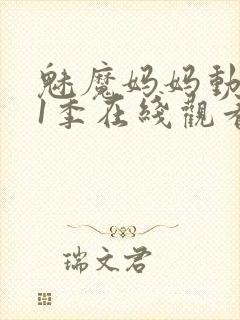 魅魔妈妈動
1季在綫觀看
瑞文君